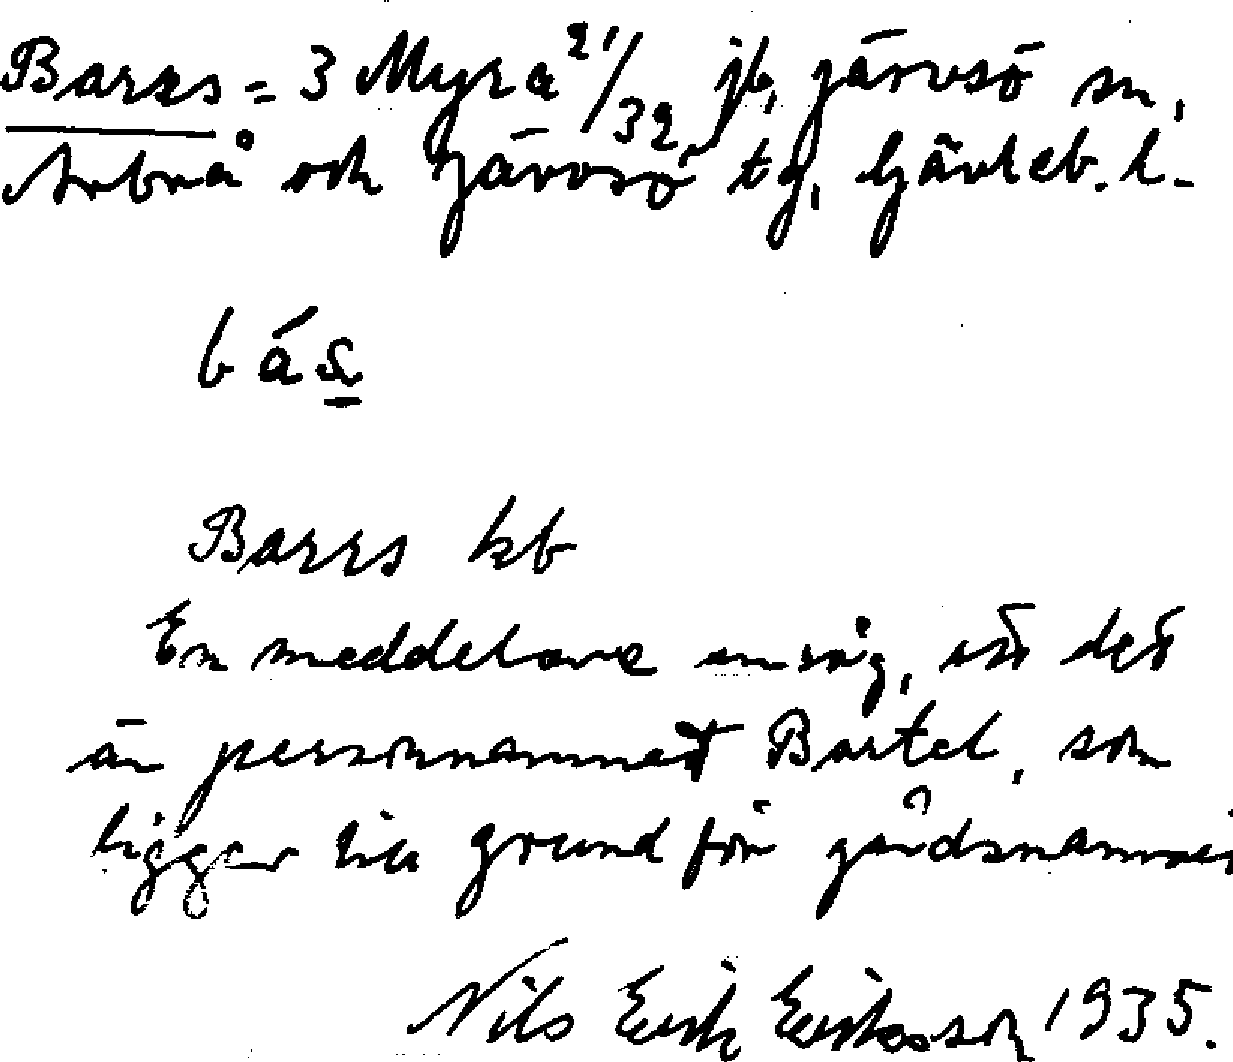 Barrs = 3 Myra 21/32 jb, Järvsö sn,
Arbrå och Järvsö tg, Gävleb. l.
bás
Barrs kb
En meddelare ansåg, att det
är personnamnet Bartel, som
ligger till grund för gårdsnamnet
Nils Erik Eriksson 1935.